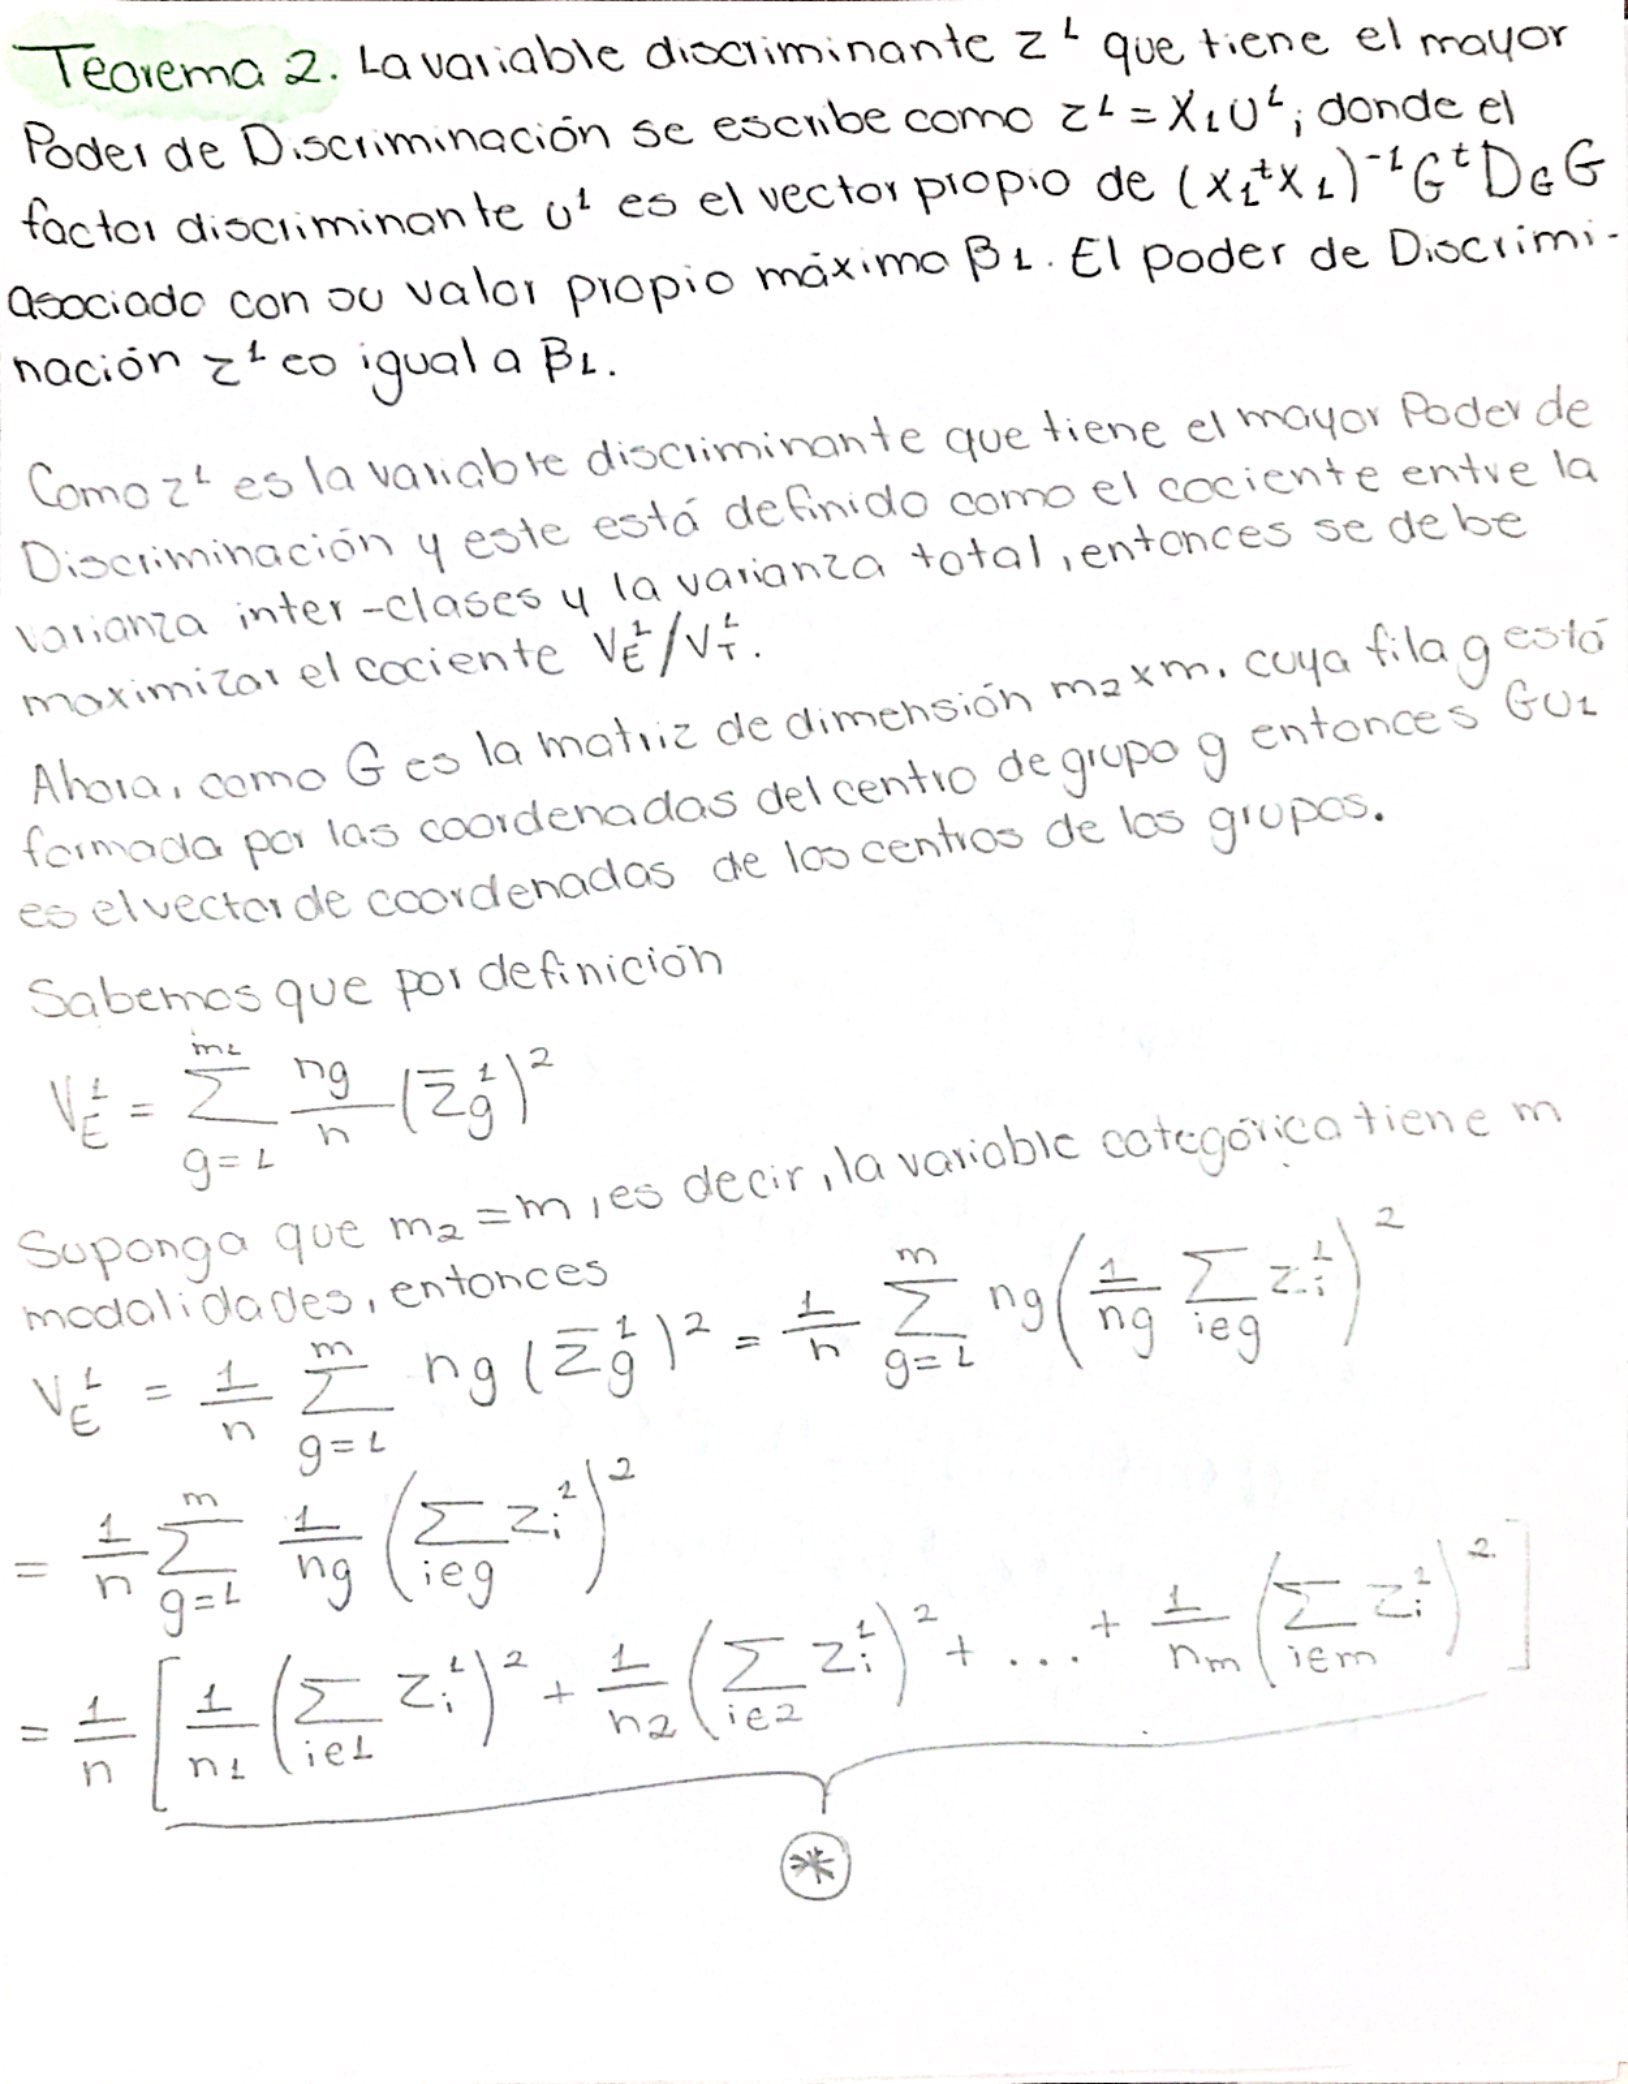 Teorema 2. La variable discriminante z¹ que tiene el mayor
Poder de Discriminación se escribe como z¹ = X₁U¹; donde el
factor discriminante U¹ es el vector propio de (X₁ᵗX₁)⁻¹GᵗD_G G
asociado con su valor propio máximo β₁. El poder de Discrimi-
nación z¹ es igual a β₁.
Como z¹ es la variable discriminante que tiene el mayor Poder de
Discriminación y este está definido como el cociente entre la
varianza inter-clases y la varianza total, entonces se debe
maximizar el cociente V_E¹/V_T¹.
Ahora, como G es la matriz de dimensión m₂xm, cuya fila g está
formada por las coordenadas del centro de grupo g entonces GU₁
es el vector de coordenadas de los centros de los grupos.
Sabemos que por definición
V_E¹ = Σ_{g=1}^{m₂} ng/n (z̄_g¹)²
Suponga que m₂ = m, es decir, la variable categórica tiene m
modalidades, entonces
V_E¹ = 1/n Σ_{g=1}^{m} ng (z̄_g¹)² = 1/n Σ_{g=1}^{m} ng (1/ng Σ_{i∈g} z_i¹)²
= 1/n Σ_{g=1}^{m} 1/ng (Σ_{i∈g} z_i¹)²
= 1/n [1/n₁ (Σ_{i∈1} z_i¹)² + 1/n₂ (Σ_{i∈2} z_i¹)² + ... + 1/n_m (Σ_{i∈m} z_i¹)²]
*